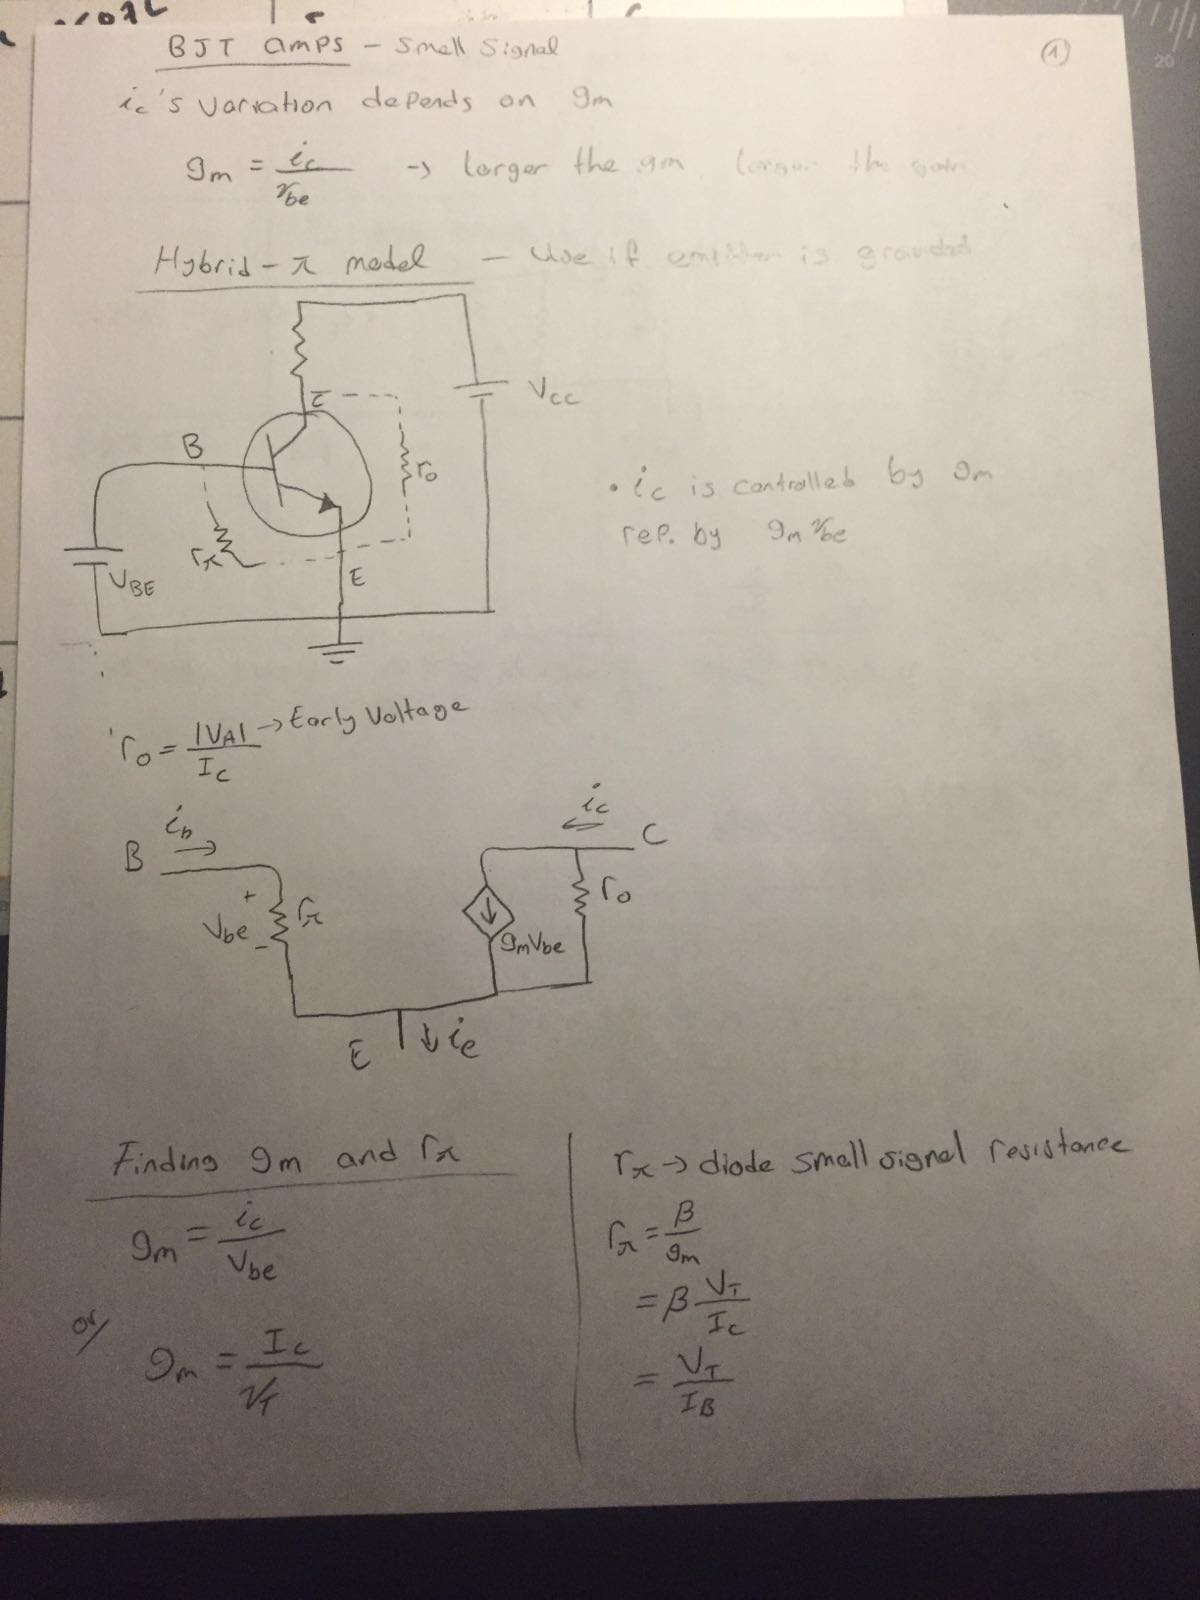 BJT amps - Small Signal
①
ic's variation depends on gm
gm = ic/vbe → larger the gm, larger the gain
Hybrid-π model - Use if emitter is grounded
C
VCC
B
ro
rπ
VBE
E
• ic is controlled by gm
rep. by gm vbe
ro = |VA|/IC → Early Voltage
ib
ic
B
C
+
Vbe
-
rπ
gmVbe
ro
E
ie
Finding gm and rπ
gm = ic/Vbe
or/
gm = IC/VT
rπ → diode small signal resistance
rπ = β/gm
= β VT/IC
= VT/IB
20